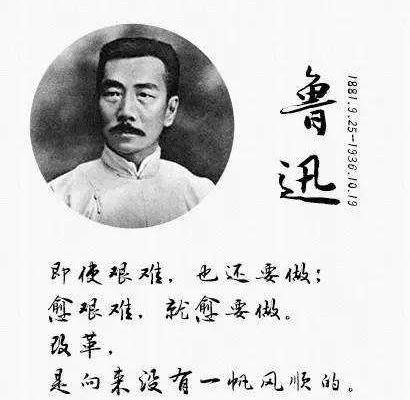 鲁迅
1881.9.25-1936.10.19
即使艰难，也还要做；
愈艰难，就愈要做。
改革，
是向来没有一帆风顺的。